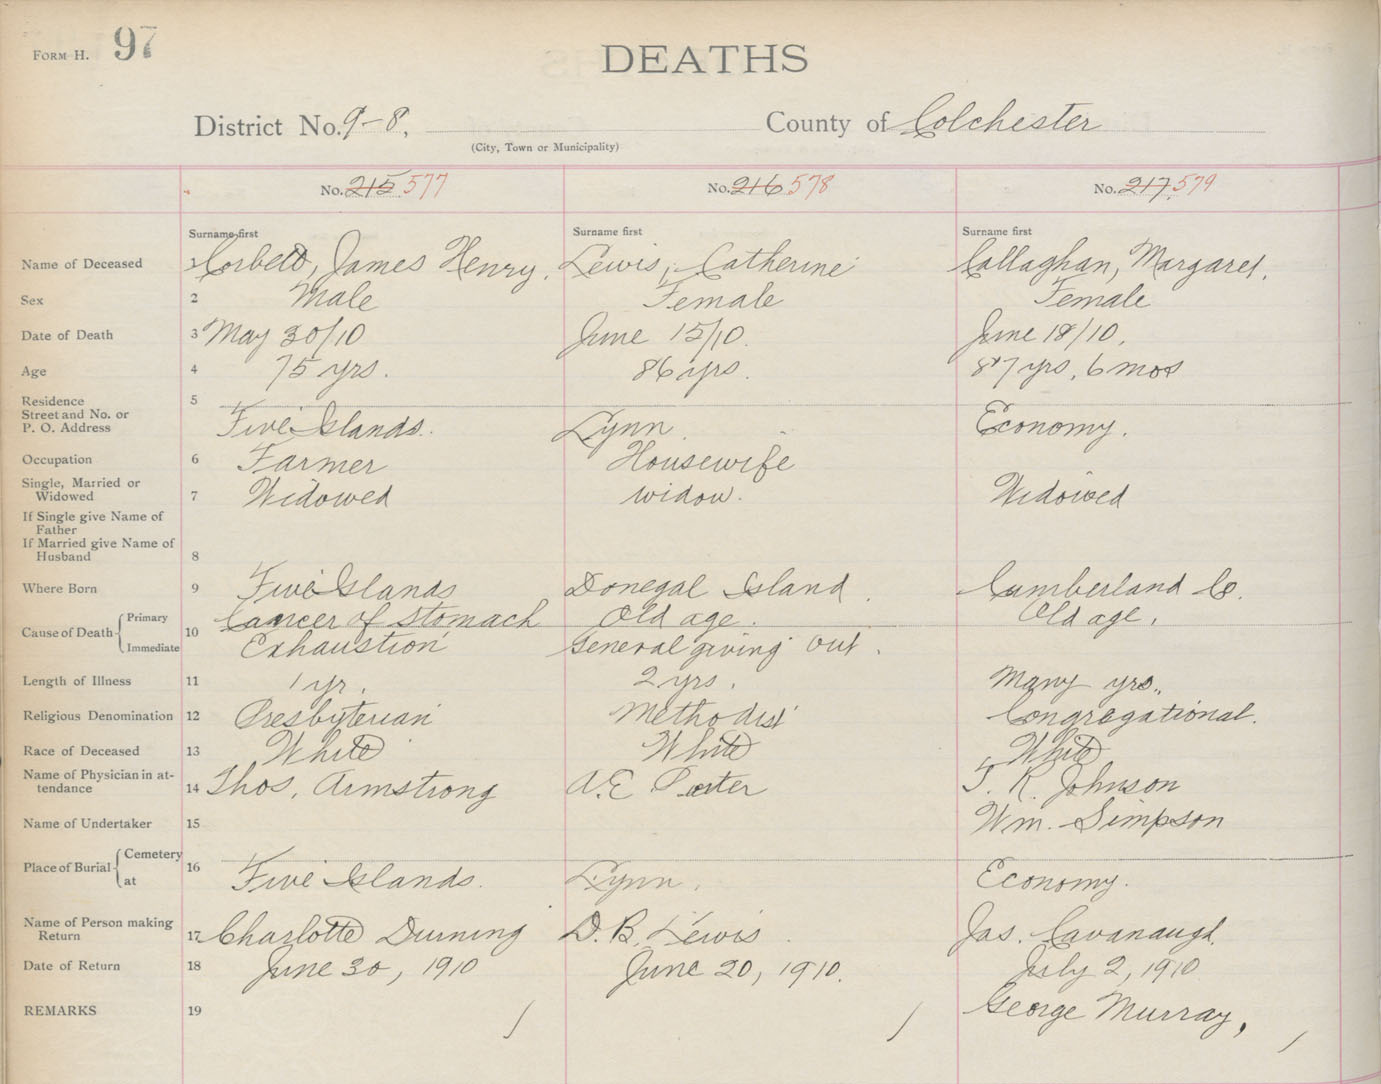 FORM H. 97
DEATHS
District No. 9-8, County of Colchester
(City, Town or Municipality)
No. 215 577 No. 216 578 No. 217 579
Surname first Surname first Surname first
Name of Deceased 1 Corbett, James Henry. Lewis, Catherine Callaghan, Margaret.
Sex 2 Male Female Female
Date of Death 3 May 30/10 June 15/10. June 18/10.
Age 4 75 yrs. 86 yrs. 87 yrs, 6 mos
Residence 5
Street and No. or
P. O. Address Five Islands. Lynn. Economy.
Occupation 6 Farmer Housewife
Single, Married or
Widowed 7 Widowed widow. Widowed
If Single give Name of
Father
If Married give Name of
Husband 8
Where Born 9 Five Islands Donegal Island. Cumberland Co.
Cause of Death Primary 10 Cancer of Stomach Old age. Old age.
Immediate Exhaustion General giving out.
Length of Illness 11 1 yr. 2 yrs. Many yrs.
Religious Denomination 12 Presbyterian Methodist Congregational.
Race of Deceased 13 White White White
Name of Physician in at-
tendance 14 Thos. Armstrong A.E Porter T. R. Johnson
Name of Undertaker 15 Wm. Simpson
Place of Burial Cemetery 16
at Five Islands. Lynn. Economy.
Name of Person making
Return 17 Charlotte Durning D. B. Lewis Jas. Cavanaugh.
Date of Return 18 June 30, 1910 June 20, 1910. July 2, 1910
REMARKS 19 George Murray,